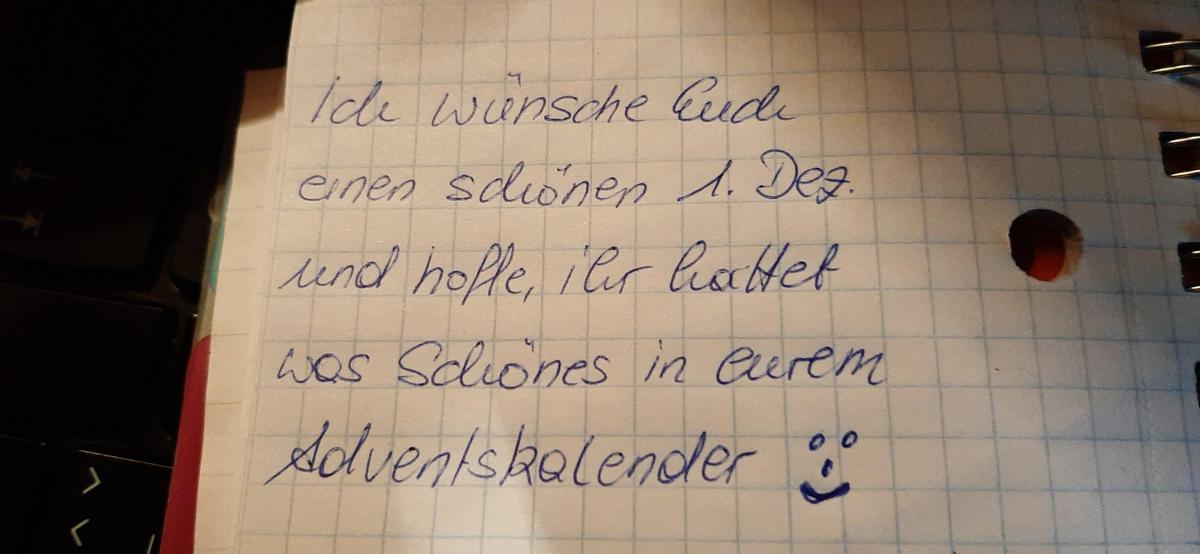 Ich wünsche Euch
einen schönen 1. Dez.
und hoffe, ihr hattet
was Schönes in eurem
Adventskalender